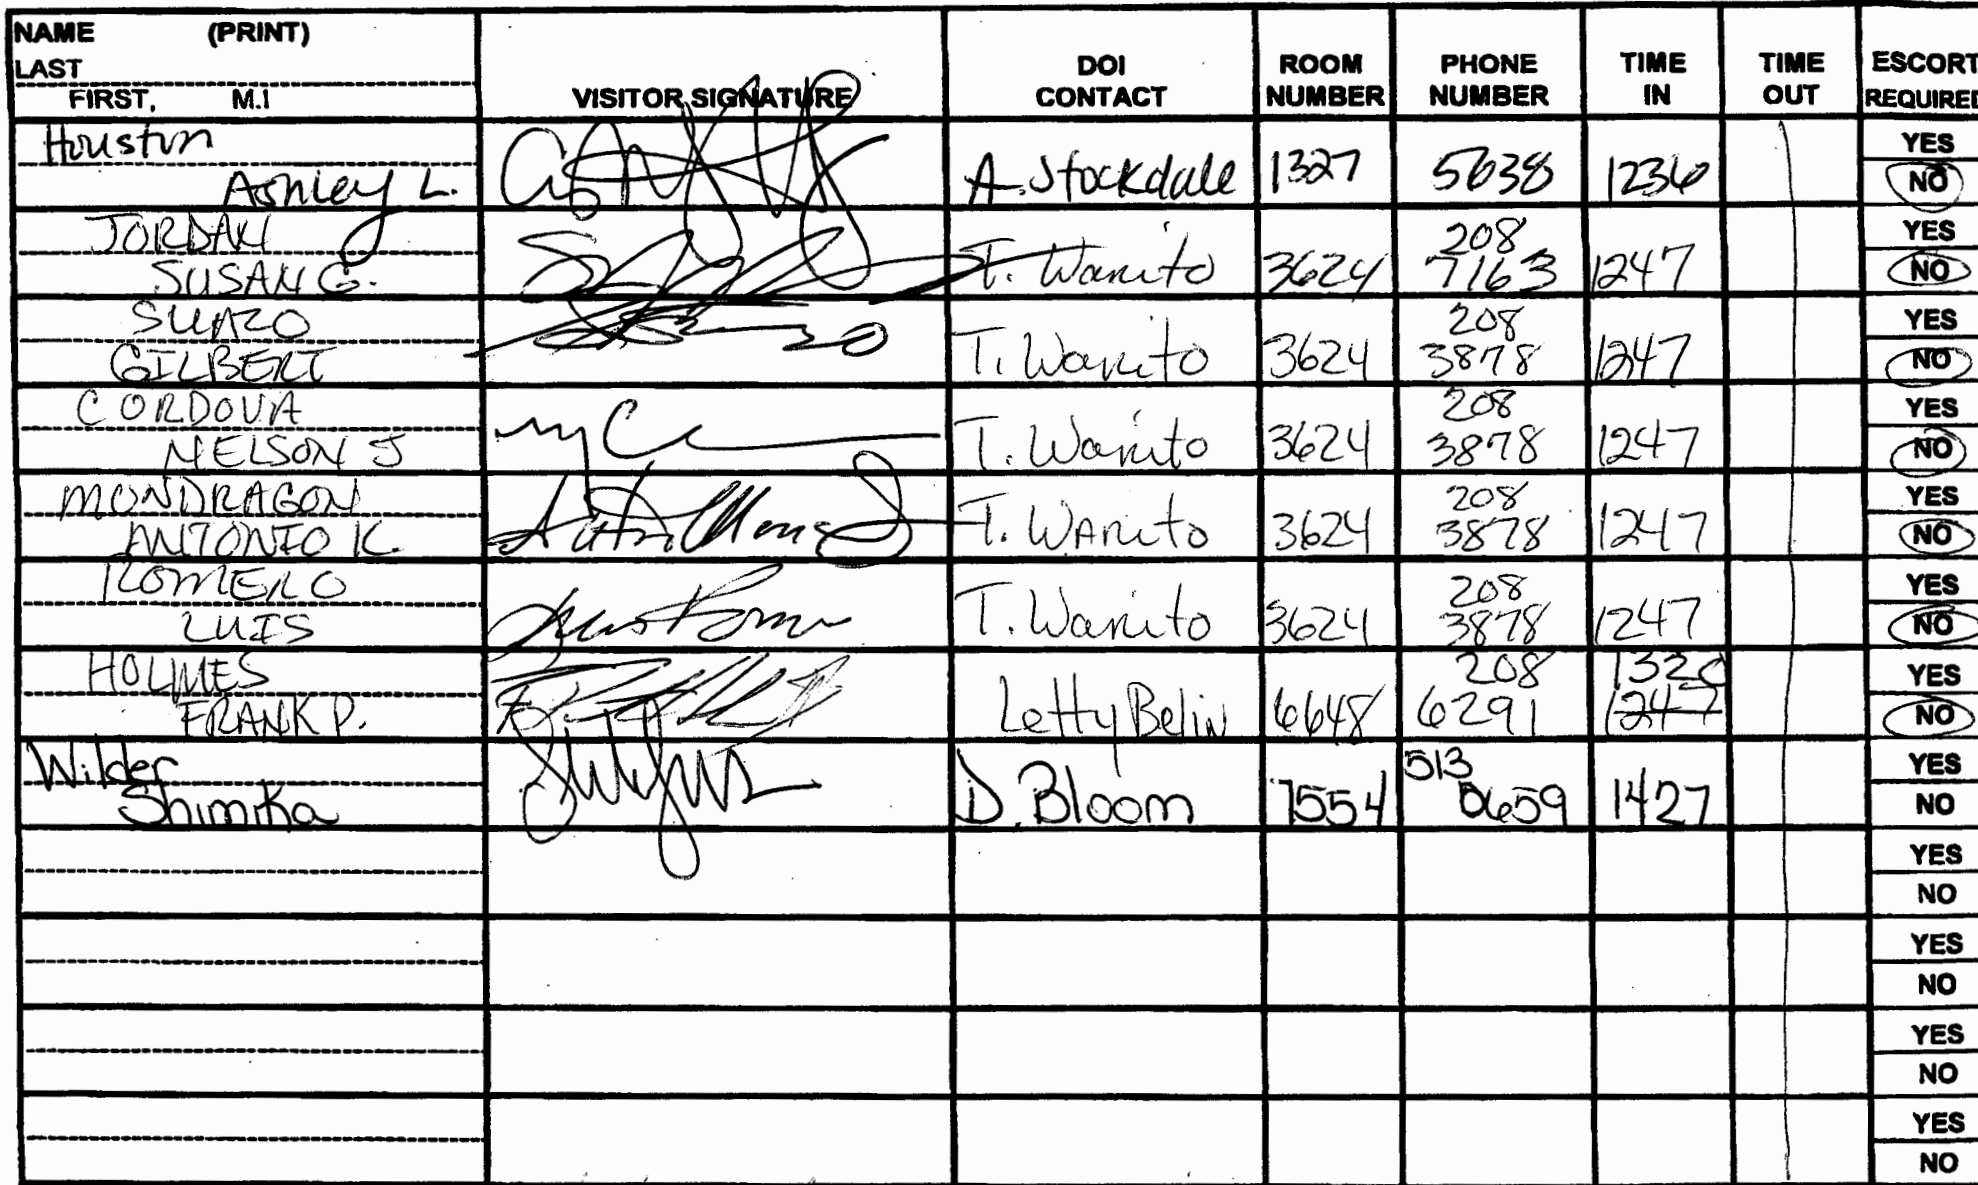 NAME (PRINT)
LAST
FIRST, M.I
VISITOR SIGNATURE
DOI
CONTACT
ROOM
NUMBER
PHONE
NUMBER
TIME
IN
TIME
OUT
ESCORT
REQUIRED
Houston
Ashley L.
A. Stockdale 1327 5638 1236
YES
NO
JORDAN
SUSAN G.
T. Wanito 3624 208
7163 1247
YES
NO
SUAZO
GILBERT
T. Wanito 3624 208
3878 1247
YES
NO
CORDOVA
NELSON J
T. Wanito 3624 208
3878 1247
YES
NO
MONDRAGON
ANTONIO K.
T. WANITO 3624 208
3878 1247
YES
NO
ROMERO
LUIS
Luis Romero
T. Wanito 3624 208
3878 1247
YES
NO
HOLMES
FRANK P.
Letty Belin 6648 208
6291 1320
1247
YES
NO
Wilder
Shimika
D. Bloom 7554 513
0659 1427
YES
NO
YES
NO
YES
NO
YES
NO
YES
NO